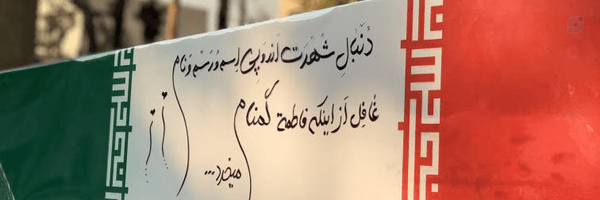 دنبالِ شهرت اند و پی اسم و رسم و نام
غافل از اینکه فاطمة گمنام
میخرد...